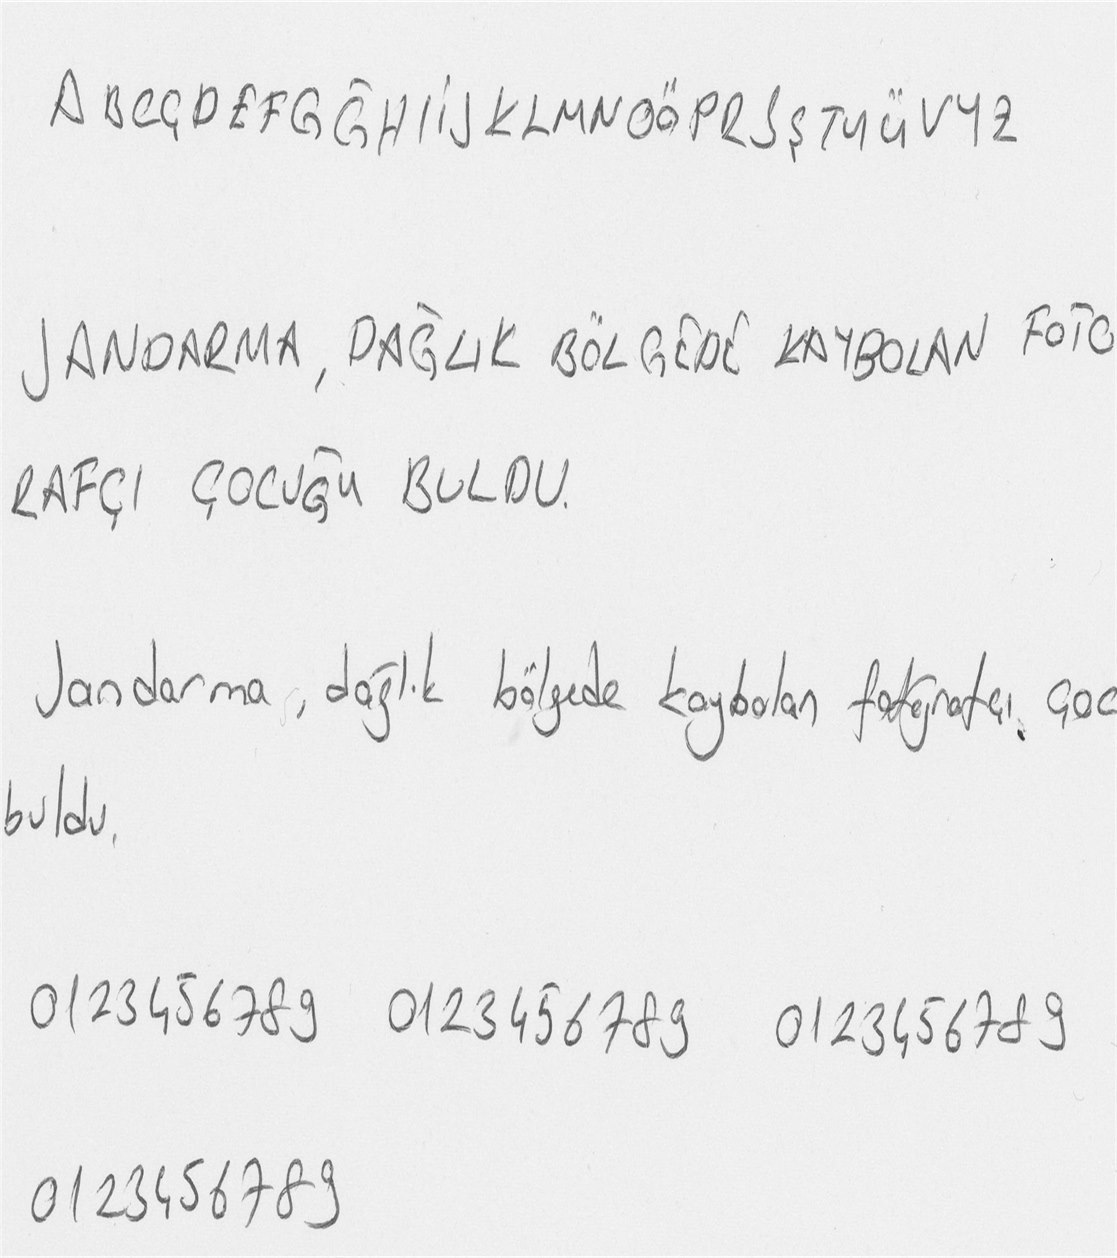 ABCÇDEFGĞHIİJKLMNOÖPRSŞTUÜVYZ
JANDARMA, DAĞLIK BÖLGEDE KAYBOLAN FOTO
RAFÇI ÇOCUĞU BULDU.
Jandarma, dağlık bölgede kaybolan fotoğrafçı çoc
buldu.
0123456789 0123456789 0123456789
0123456789